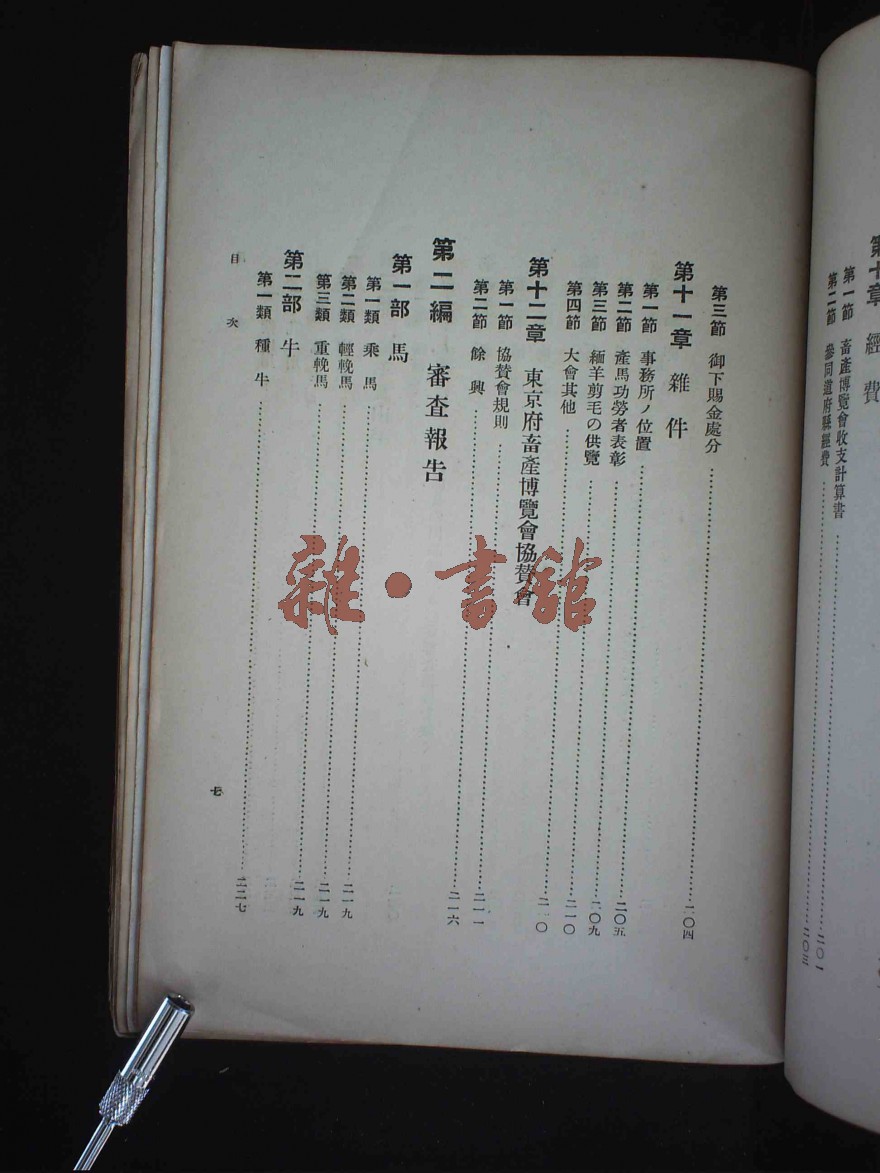 第十章 經費
第一節 畜產博覽會收支計算書……二〇一
第二節 參同道府縣經費……二〇三
第三節 御下賜金處分……二〇四
第十一章 雜件
第一節 事務所ノ位置……二〇五
第二節 產馬功勞者表彰……二〇九
第三節 緬羊剪毛の供覽……二一〇
第四節 大會其他……二一〇
第十二章 東京府畜產博覽會協賛會
第一節 協賛會規則……二一一
第二節 餘興……二一六
第二編 審査報告
第一部 馬
第一類 乘馬……二一九
第二類 輕輓馬……二一九
第三類 重輓馬……二一九
第二部 牛
第一類 種牛……二二七
目次
七
雜・書館